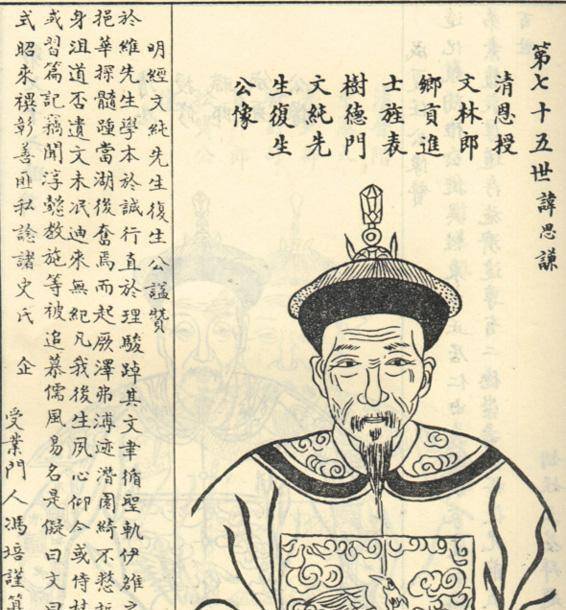 第七十五世諱思謙
清恩授
文林郎
鄉貢進
士旌表
樹德門
文純先
生復生
公像
明經文純先生復生公諡贊
於維先生學本於誠行直於理駿踔其文聿循聖軌伊雄
挹華探髓踵當湖後奮焉而起厥澤弗溥迹潛園綺不憖
身沮道否遺文未泯迪來無紀凡我後生夙心仰今或侍
或習篇記竊聞淳懿教施等被追慕儒風易名是儗曰文曰
式昭來禩彰善匪私諗諸史氏 企
受業門人馮培謹